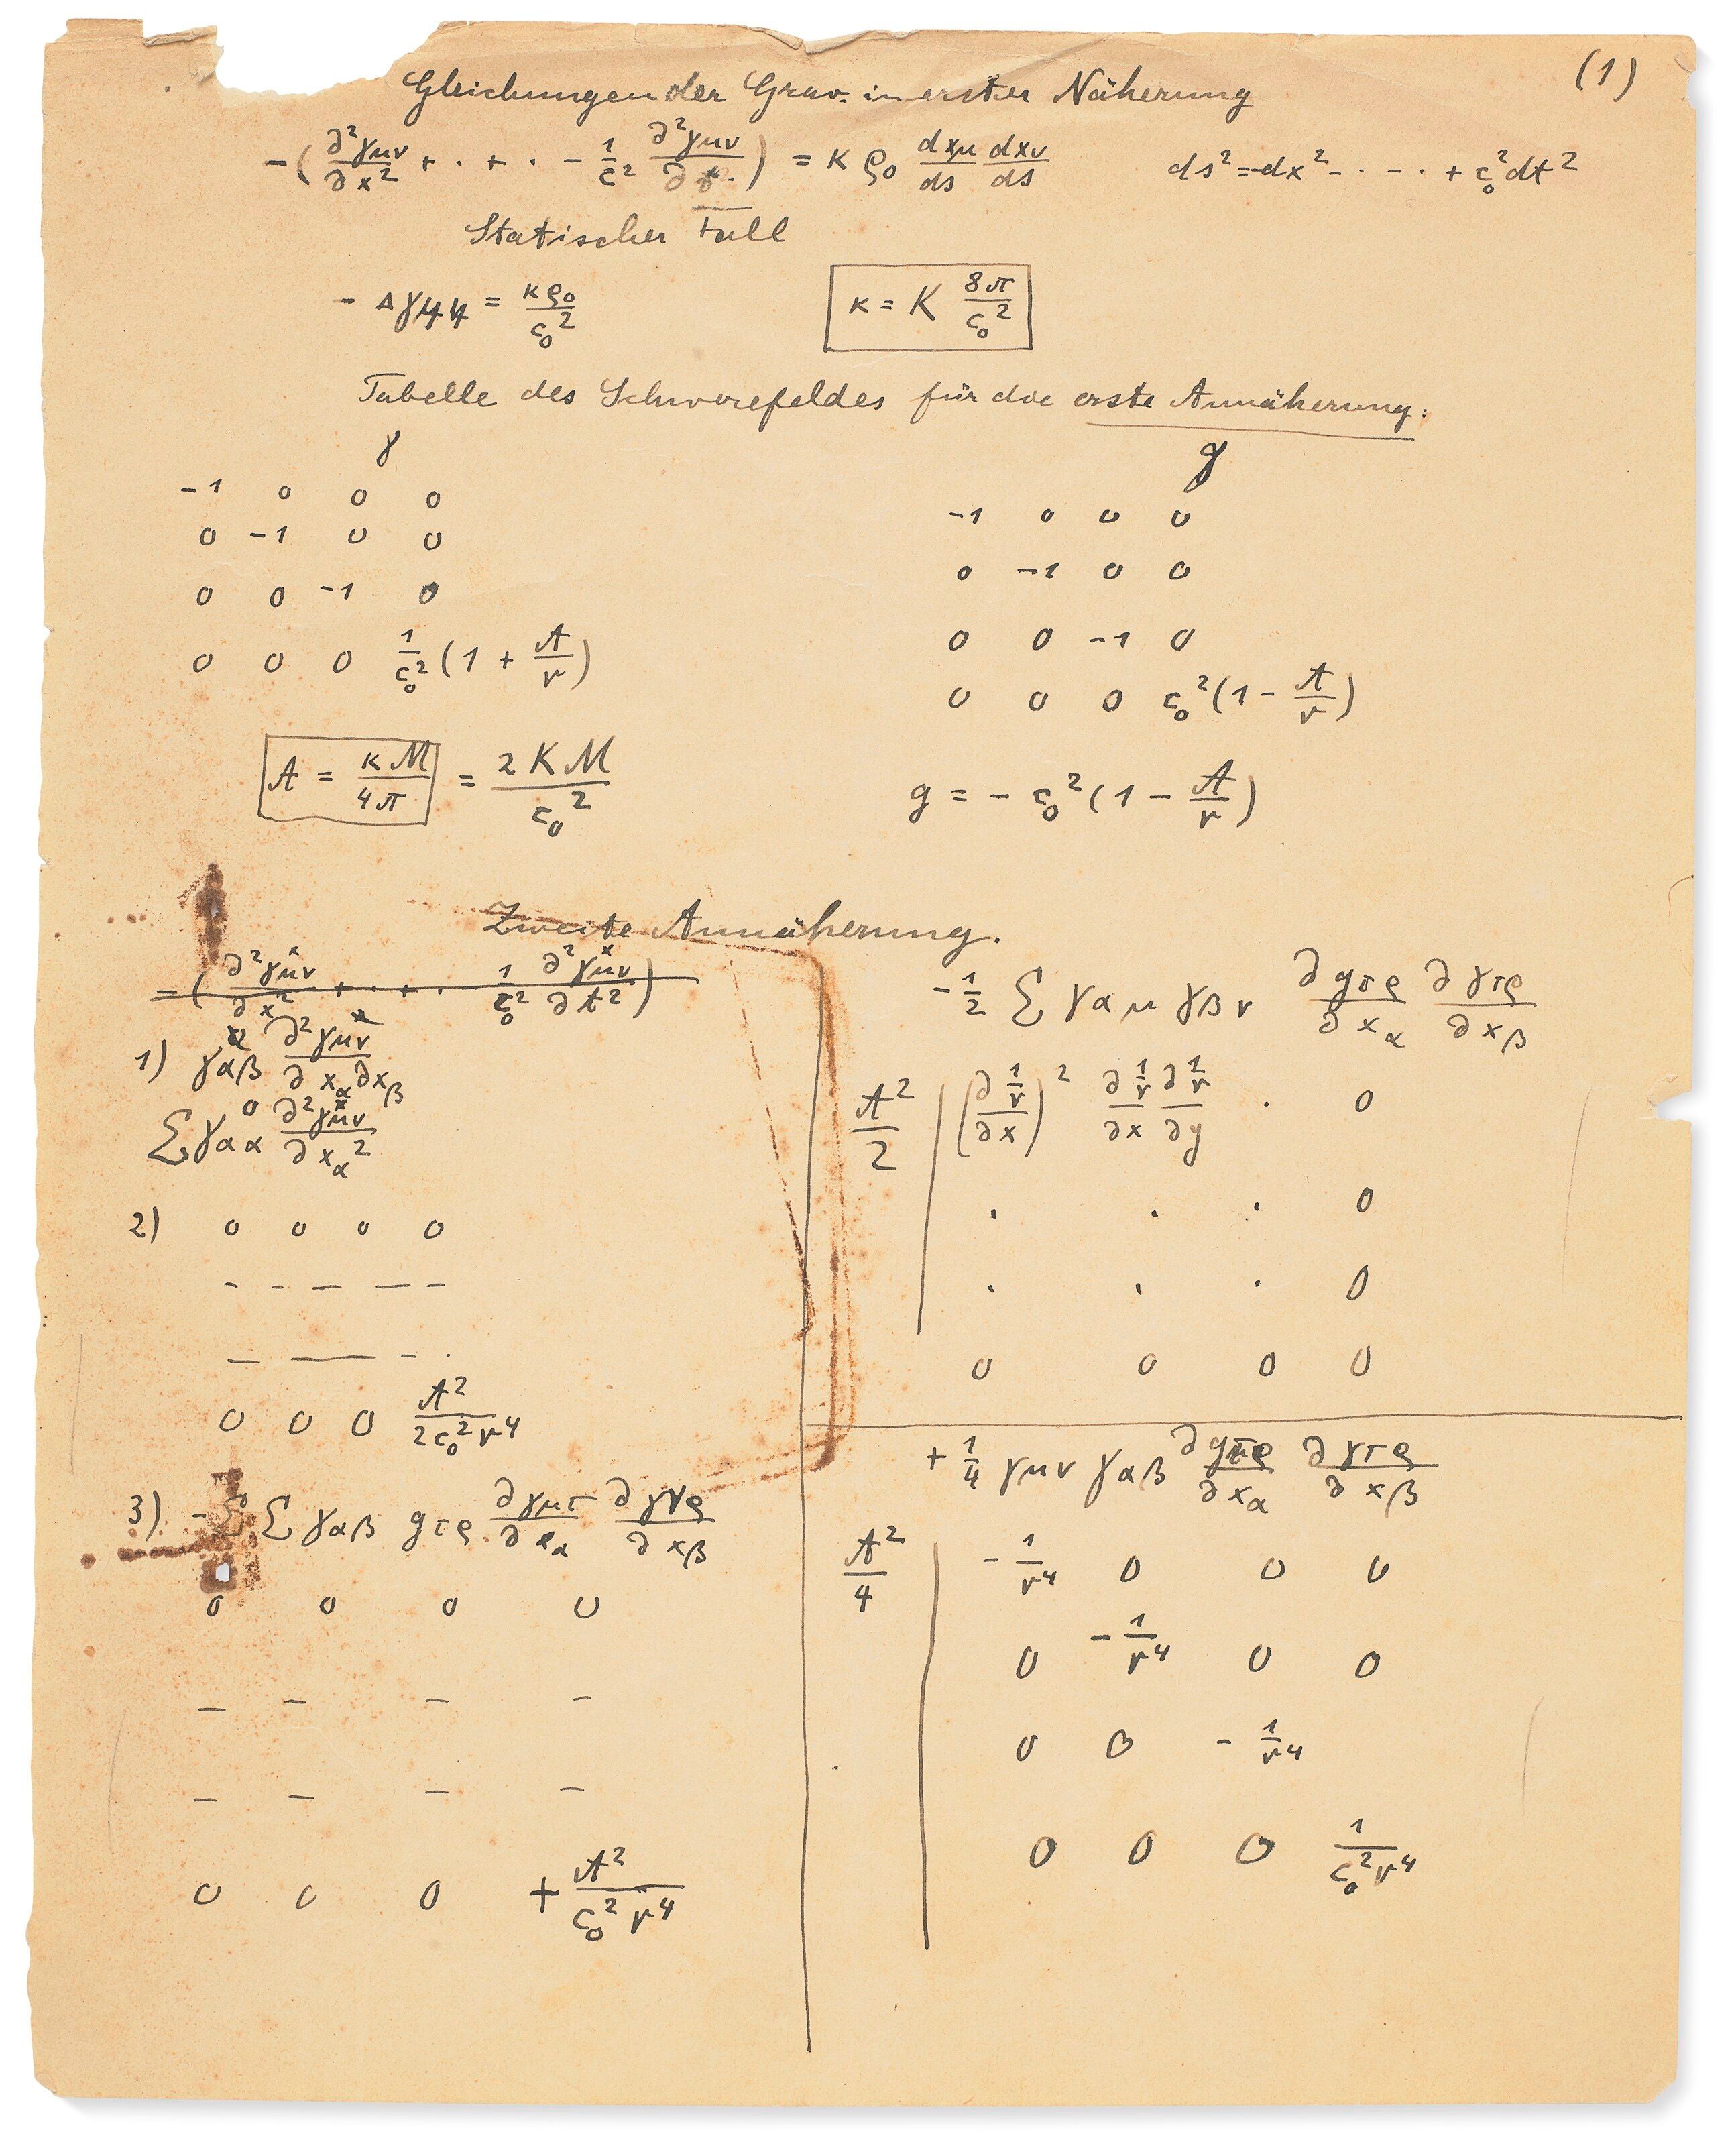 (1)
Gleichungen der Grav. in erster Näherung
-(∂²γμν/∂x² + · + · - 1/c² ∂²γμν/∂t·) = κ ρ₀ dxμ/ds dxν/ds    ds² = -dx² - · - · + c₀² dt²
Statischer Fall
- Δγ44 = κρ₀/c₀²    κ = K 8π/c₀²
Tabelle des Schwerefeldes für die erste Annäherung:
γ    g
-1 0 0 0
0 -1 0 0
0 0 -1 0
0 0 0 1/c₀² (1 + A/r)
-1 0 0 0
0 -1 0 0
0 0 -1 0
0 0 0 c₀² (1 - A/r)
A = κM/4π = 2KM/c₀²    g = - c₀² (1 - A/r)
Zweite Annäherung.
-(∂²γμν^x/∂x² + · + · - 1/c₀² ∂²γμν^x/∂t²)
1) γαβ ∂²γμν^x/∂xα∂xβ
Σ γαα^0 ∂²γμν^x/∂xα²
2) 0 0 0 0
- - - - -
- - - ·
0 0 0 A²/2c₀²r⁴
3) -Σ Σ γαβ gτρ ∂γμτ/∂xα ∂γνρ/∂xβ
0 0 0 0
- - - -
- - - -
0 0 0 + A²/c₀²r⁴
-1/2 Σ γαμ γβν ∂gτρ/∂xα ∂γτρ/∂xβ
A²/2 | (∂1/r/∂x)² ∂1/r/∂x ∂1/r/∂y · 0
· · · 0
· · · 0
0 0 0 0
+ 1/4 γμν γαβ ∂gτρ/∂xα ∂γτρ/∂xβ
A²/4 | -1/r⁴ 0 0 0
0 -1/r⁴ 0 0
0 0 -1/r⁴
0 0 0 1/c₀²r⁴